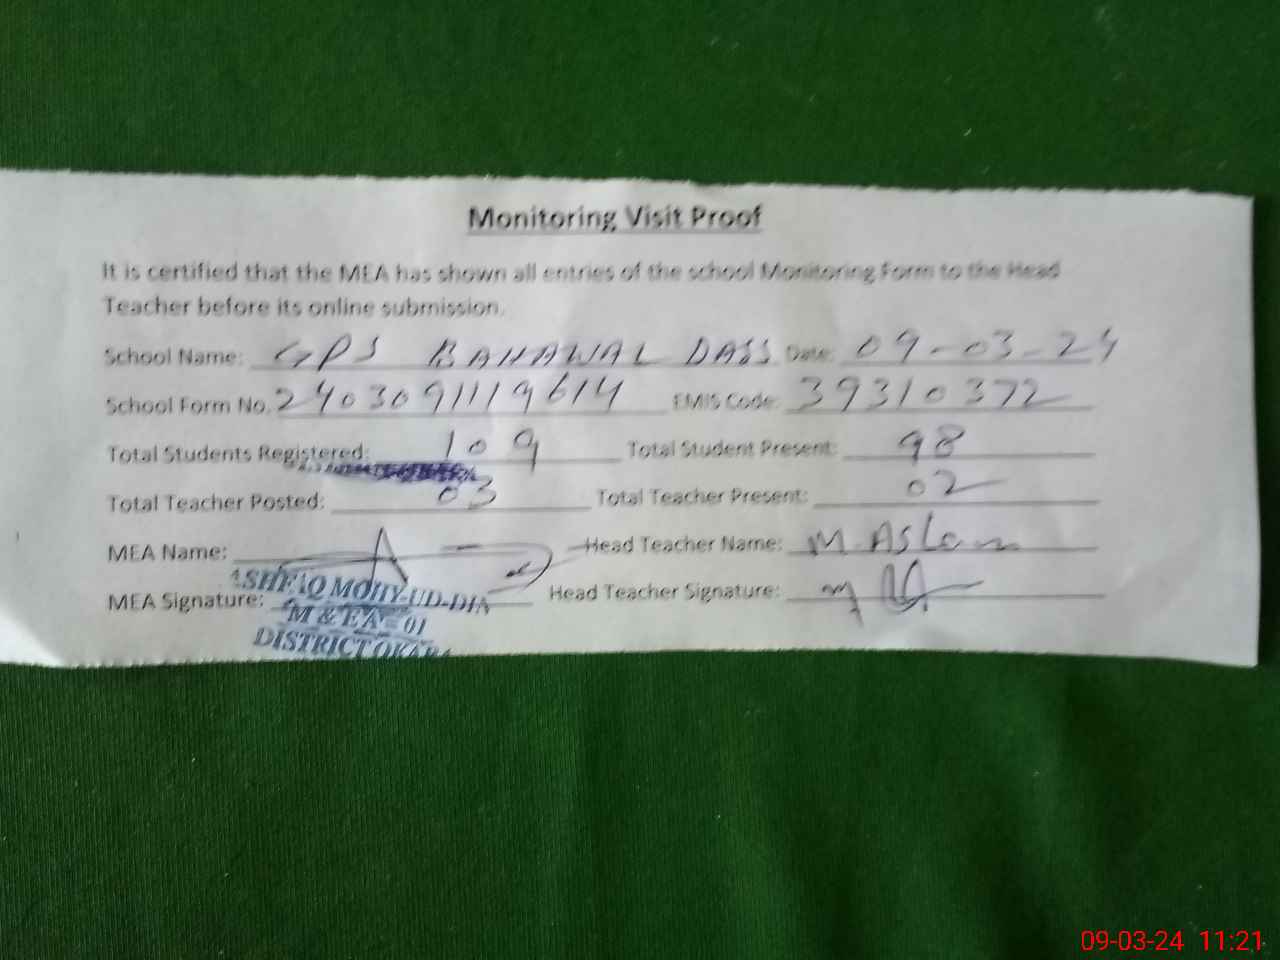 Monitoring Visit Proof
It is certified that the MEA has shown all entries of the school Monitoring Form to the Head
Teacher before its online submission.
School Name: GPS BAHAWAL DASS Date: 09-03-24
School Form No. 2403091119614 EMIS Code: 39310372
Total Students Registered: 109 Total Student Present: 98
Total Teacher Posted: 03 Total Teacher Present: 02
MEA Name: Head Teacher Name: M. Aslam
MEA Signature: Head Teacher Signature:
ASHFAQ MOHY-UD-DIN
M & EA = 01
DISTRICT OKARA
09-03-24 11:21